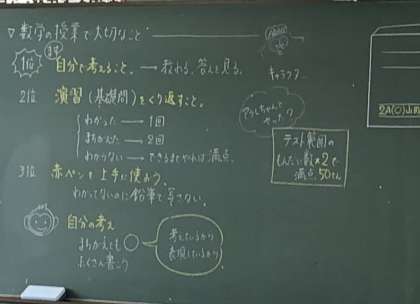 ▽数学の授業で大切なこと
1位 まず 自分で考えること。→教わる、答え見る。
2位 演習(基礎問)をくり返すこと。
わかった → 1回
まちがえた → 2回
わからない → できるまでやれば満点。
3位 赤ペンを上手に使おう。
わかってないのに鉛筆で写さない。
自分の考え
まちがえても○
たくさん書こう
考えているから
表現しているから
テスト範囲の
もんだい数×2で
満点 50てん